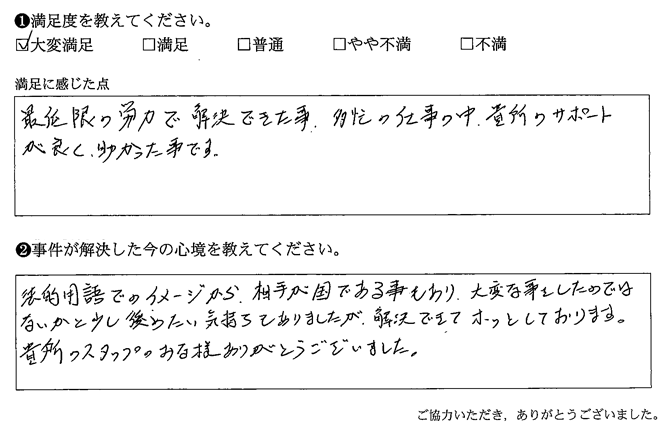 ❶満足度を教えてください。
☑大変満足 □満足 □普通 □やや不満 □不満
満足に感じた点
最低限の労力で解決できた事、多忙の仕事の中、貴所のサポート
が良く、助かった事です。
❷事件が解決した今の心境を教えてください。
法的用語でのイメージから、相手が国である事もあり、大変な事をしたのでは
ないかと少し後めたい気持ちもありましたが、解決できてホッとしております。
貴所のスタッフのお様ありがとうございました。
ご協力いただき，ありがとうございました。